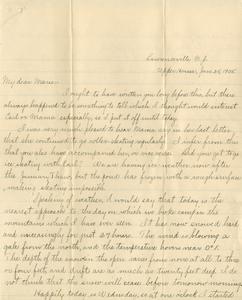 Lawrenceville N.J.
Upper House, Jan. 25, 1905.
My dear Mama:—
I ought to have written you long before this, but there
always happened to be something to tell which I thought would interest
Dad or Mama especially, so I put it off until today.
I was very much pleased to hear Mama say in her last letter,
that she continued to go roller-skating regularly. I infer from this
that you also have accompanied her, or once or twice. Did you get to go
ice skating with Carl? We are having zero weather now after
the January thaw, but the pond has frozen with a rough surface
making skating impossible.
Speaking of weather, I would say that today is the
nearest approach to the day on which we broke camp in the
mountains which I have ever seen. It has now snowed hard
and unceasingly for just 24 hours. The wind is blowing a
gale from the north, and the temperature hovers near 0°.
The depth of the snow on the open varies from none at all to three
or four feet, and drifts are as much as twenty feet deep. I do
not think that the snow will cease before tomorrow morning.
Happily today is Wednesday, so at one o'clock I started